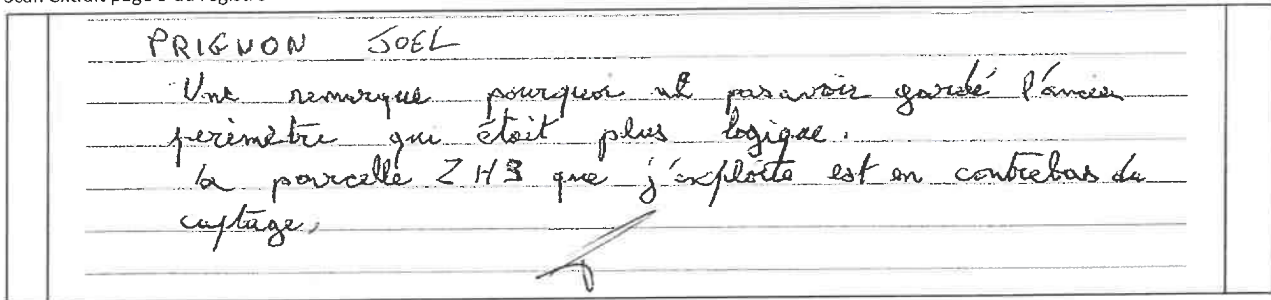 PRIGNON JOEL
Une remarque pourquoi ne pas avoir gardé l'ancien
perimètre qui était plus logique.
la parcelle ZH3 que j'exploite est en contrebas du
captage.